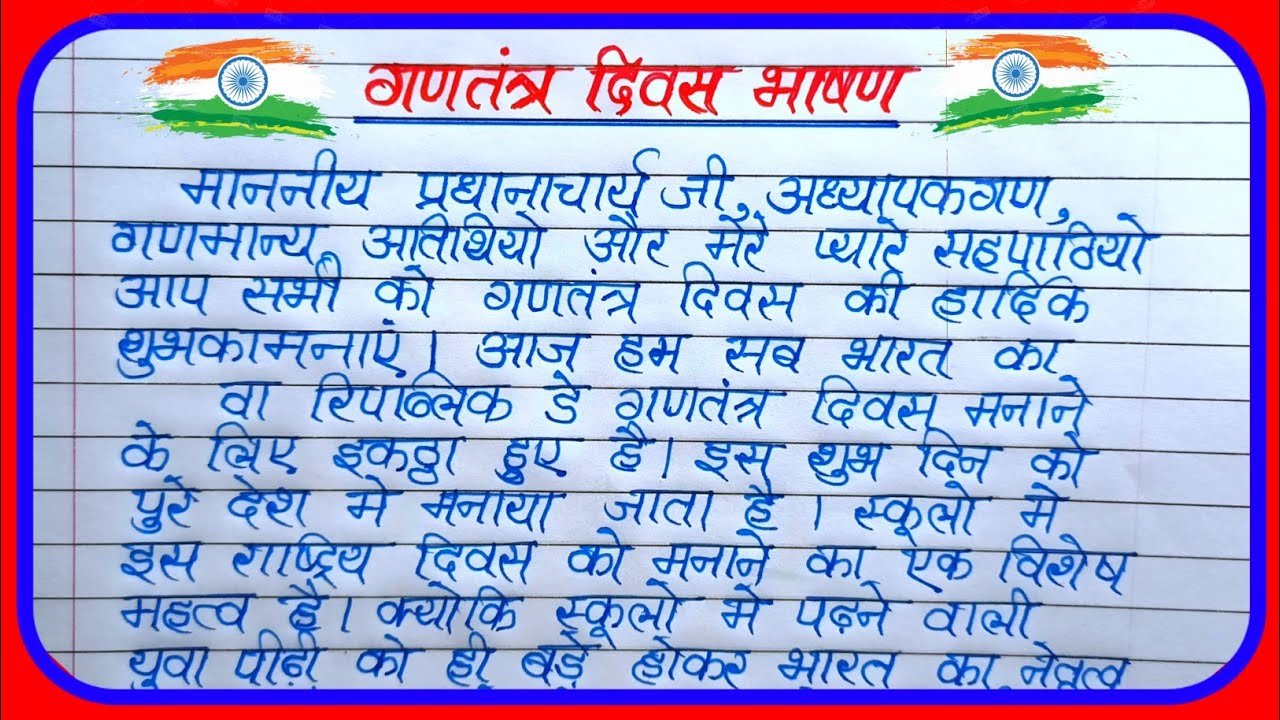 गणतंत्र दिवस भाषण
माननीय प्रधानाचार्य जी, अध्यापकगण,
गणमान्य अतिथियो और मेरे प्यारे सहपाठियो
आप सभी को गणतंत्र दिवस की हार्दिक
शुभकामनाएं। आज हम सब भारत का
वा रिपब्लिक डे गणतंत्र दिवस मनाने
के लिए इकठ्ठा हुए है। इस शुभ दिन को
पुरे देश मे मनाया जाता है। स्कूलो मे
इस राष्ट्रिय दिवस को मनाने का एक विशेष
महत्व है। क्योकि स्कूलो मे पढ़ने वाली
युवा पीढ़ी को ही बड़े होकर भारत का नेतृत्व